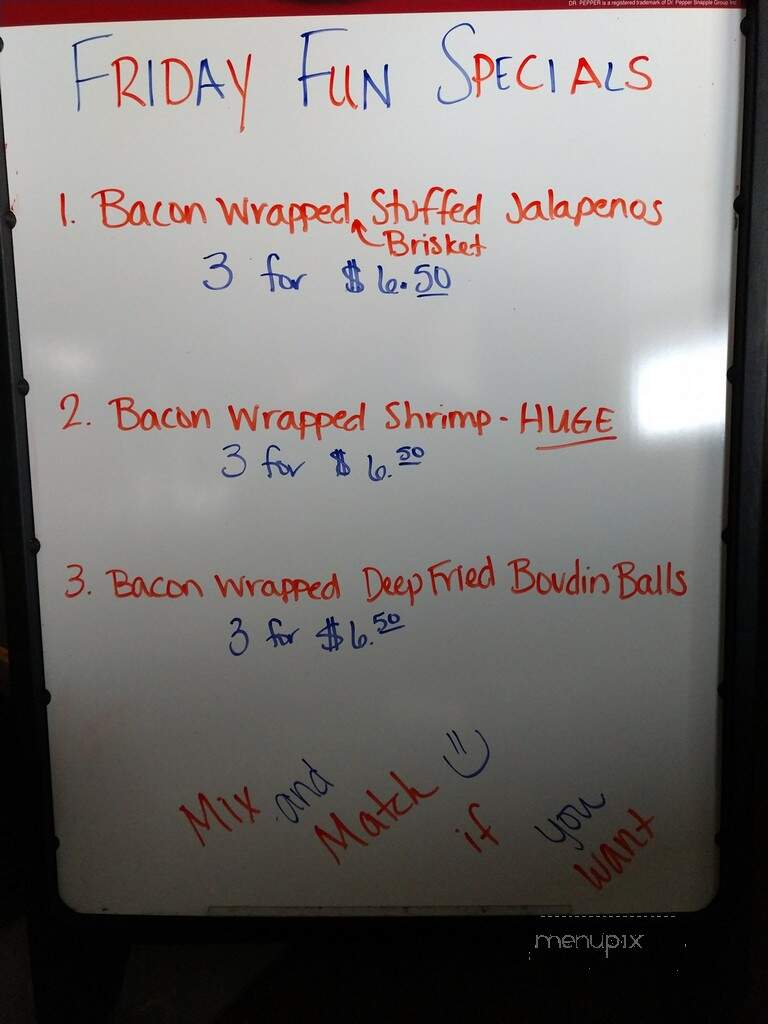 DR. PEPPER is a registered trademark of Dr. Pepper Snapple Group Inc.
FRIDAY FUN SPECIALS
1. Bacon Wrapped Stuffed Jalapenos
Brisket
3 for $6.50
2. Bacon Wrapped Shrimp - HUGE
3 for $6.50
3. Bacon Wrapped Deep Fried Boudin Balls
3 for $6.50
Mix and Match if you want
menupix